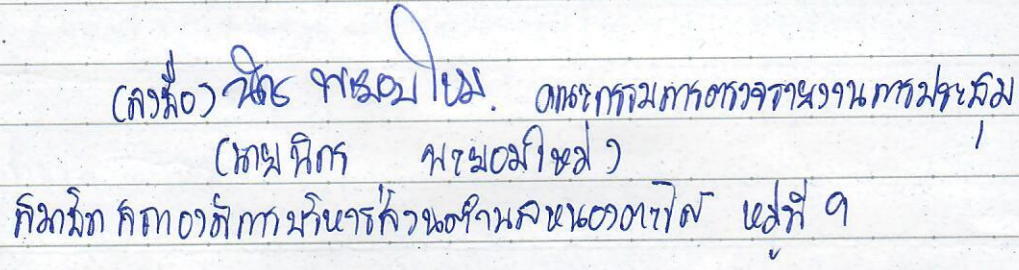 (ลงชื่อ) นิกร พะยอมใหม่ คณะกรรมการตรวจรายงานการประชุม
(นายนิกร พะยอมใหม่)
สมาชิกสภาองค์การบริหารส่วนตำบลหนองตาไส้ หมู่ที่ ๑